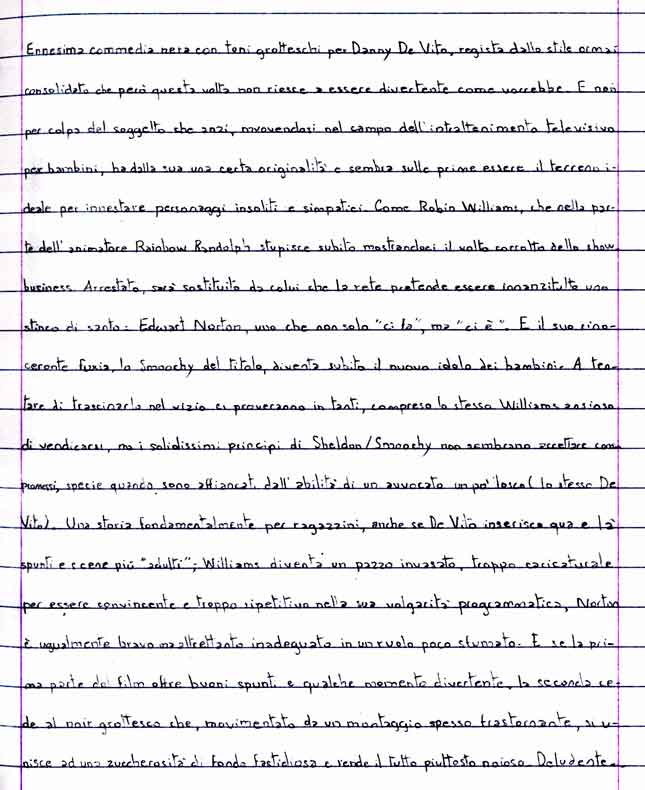 Ennesima commedia nera con toni grotteschi per Danny De Vito, regista dallo stile ormai
consolidato che però questa volta non riesce a essere divertente come vorrebbe. E non
per colpa del soggetto che anzi, muovendosi nel campo dell'intrattenimento televisivo
per bambini, ha dalla sua una certa originalità e sembra sulle prime essere il terreno i-
deale per innestare personaggi insoliti e simpatici. Come Robin Williams, che nella par-
te dell'animatore Rainbow Randolph stupisce subito mostrandoci il volto corrotto dello show
business. Arrestato, sarà sostituito da colui che la rete pretende essere innanzitutto uno
stinco di santo: Edwart Norton, uno che non solo "ci fa", ma "ci è". E il suo rino-
ceronte fuxia, lo Smoochy del titolo, diventa subito il nuovo idolo dei bambini. A ten-
tare di trascinarlo nel vizio ci proveranno in tanti, compreso lo stesso Williams ansioso
di vendicarsi, ma i solidissimi principi di Sheldon/Smoochy non sembrano accettare com-
promessi, specie quando sono affiancati dall'abilità di un avvocato un po' losco (lo stesso De
Vito). Una storia fondamentalmente per ragazzini, anche se De Vito inserisce qua e là
spunti e scene più "adulti"; Williams diventa un pazzo invasato, troppo caricaturale
per essere convincente e troppo ripetitivo nella sua volgarità programmatica, Norton
è ugualmente bravo ma altrettanto inadeguato in un ruolo poco sfumato. E se la pri-
ma parte del film offre buoni spunti e qualche momento divertente, la seconda ce-
de al noir grottesco che, movimentato da un montaggio spesso frastornante, si u-
nisce ad una zuccherosità di fondo fastidiosa e rende il tutto piuttosto noioso. Deludente.